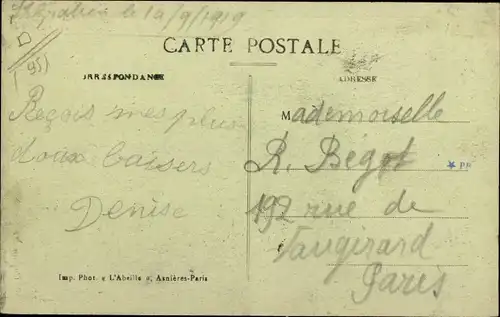 le 10/9/1919
CARTE POSTALE
CORRESPONDANCE
ADRESSE
(95)
Reçois mes plus
doux baisers
Denise
Mademoiselle
R. Bégot
192 rue de
Vaugirard
Paris
Imp. Phot. « L'Abeille », Asnières-Paris